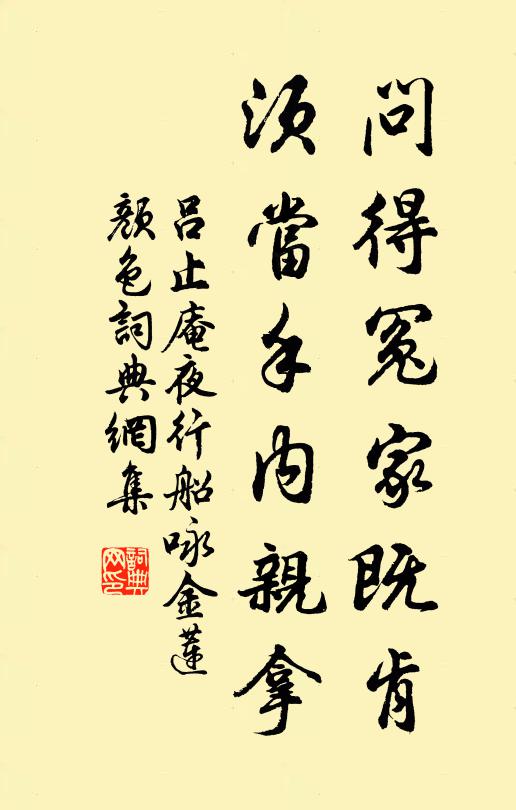 問得冤家既肯
須當手內親拿
吕止庵夜行船咏金蓮
顏色詞典網集
詞典
网印